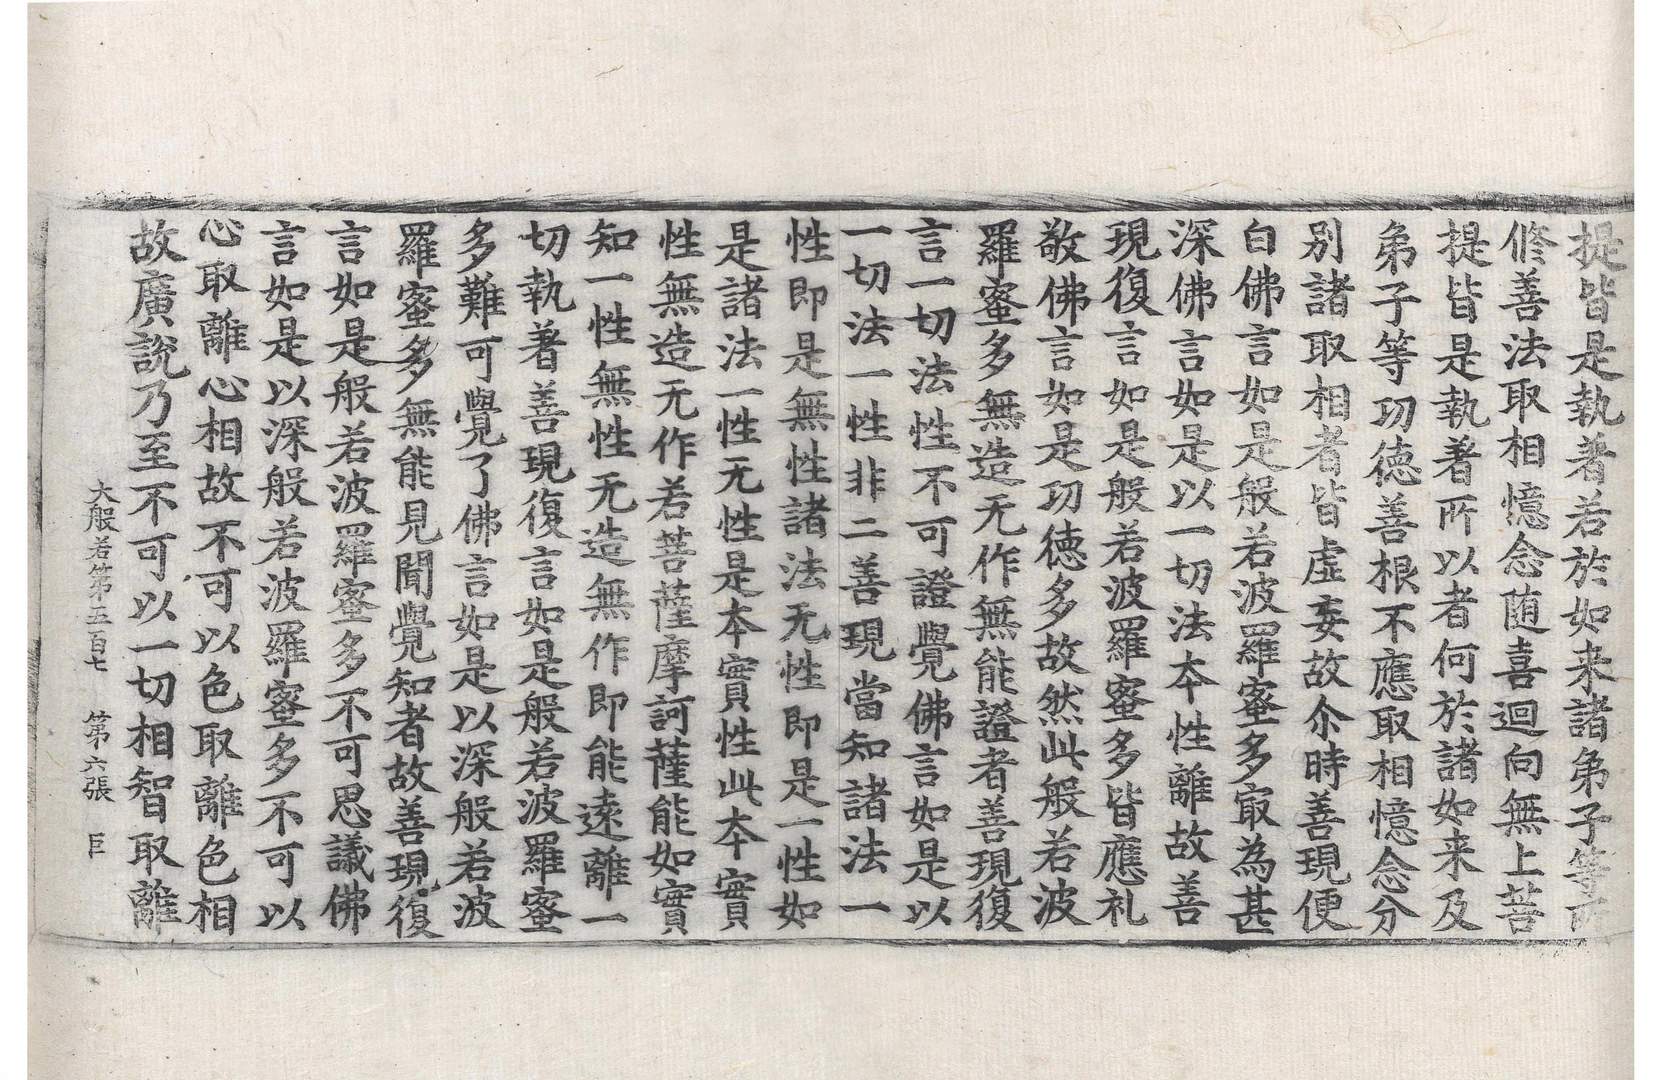 提皆是執著若於如来諸弟子等所
修善法取相憶念随喜迴向無上菩
提皆是執著所以者何於諸如来及
弟子等功徳善根不應取相憶念分
別諸取相者皆虛妄故尒時善現便
白佛言如是般若波羅蜜多㝡為甚
深佛言如是以一切法本性離故善
現復言如是般若波羅蜜多皆應礼
敬佛言如是功徳多故然此般若波
羅蜜多無造无作無能證者善現復
言一切法性不可證覺佛言如是以
一切法一性非二善現當知諸法一
性即是無性諸法无性即是一性如
是諸法一性无性是本實性此本實
性無造无作若菩薩摩訶薩能如實
知一性無性无造無作即能遠離一
切執著善現復言如是般若波羅蜜
多難可覺了佛言如是以深般若波
羅蜜多無能見聞覺知者故善現復
言如是般若波羅蜜多不可思議佛
言如是以深般若波羅蜜多不可以
心取離心相故不可以色取離色相
故廣說乃至不可以一切相智取離
大般若第五百七 第六張 巨